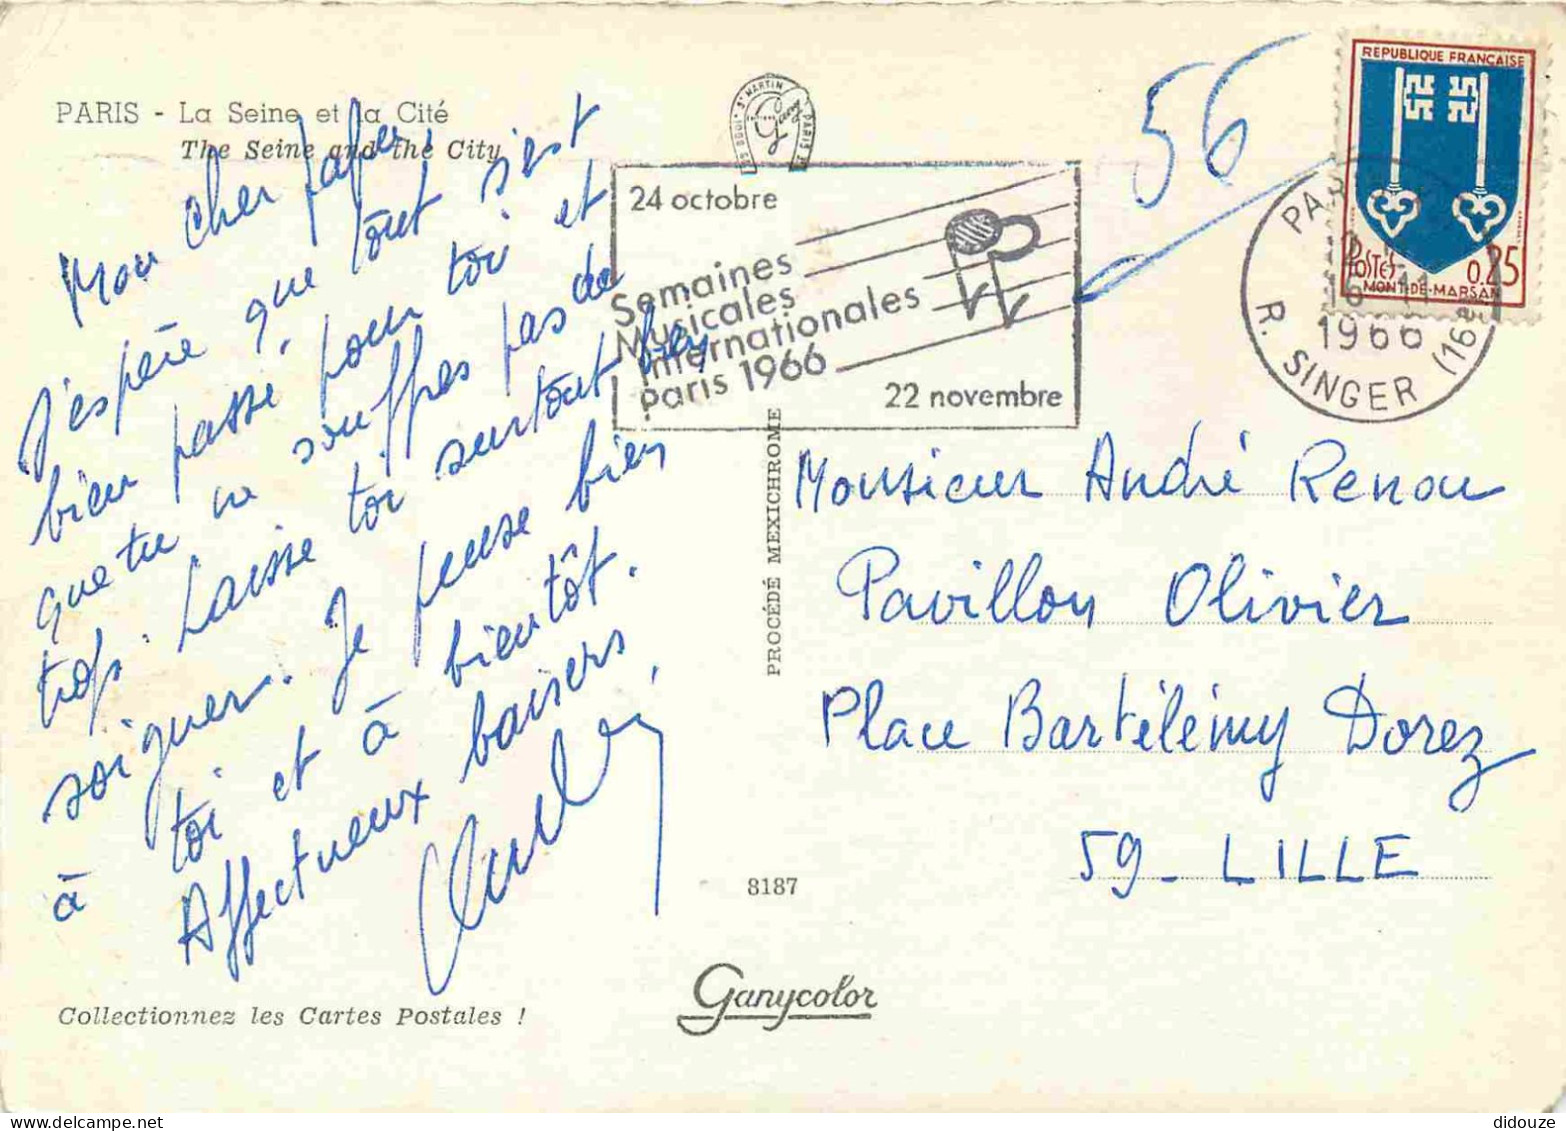 PARIS - La Seine et la Cité
The Seine and the City
Mon cher
J'espère que tout s'est
bien passé pour toi et
que tu ne souffres pas de
trop. Laisse toi surtout bien
soigner. Je pense bien
à toi et à bientôt.
Affectueux baisers
Collectionnez les Cartes Postales !
24 octobre
Semaines
Musicales
Internationales
Paris 1966
22 novembre
PROCÉDÉ MEXICHROME
8187
Ganycolor
56
REPUBLIQUE FRANÇAISE
POSTES 0,25
MONT-DE-MARSAN
1966
R. SINGER (16e)
Monsieur André Renou
Pavillon Olivier
Place Bartélémy Dorez
59 - LILLE
didouze